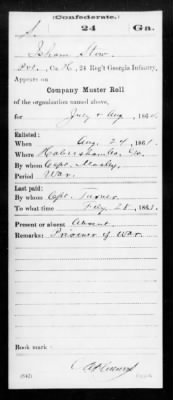 (Confederate.)
S. 24 Ga.
Isham Stow
Pvt., Co. K, 24 Reg't Georgia Infantry,
Appears on
Company Muster Roll
of the organization named above,
for July & Aug, 186
Enlisted:
When Aug. 24, 1861.
Where Habersham Co. Ga.
By whom Capt.
Period War.
Last paid:
By whom Capt. Turner
To what time Feby. 28, 186
Present or absent Absent
Remarks: Prisoner of War.
Book mark:
(642)
Copyist.